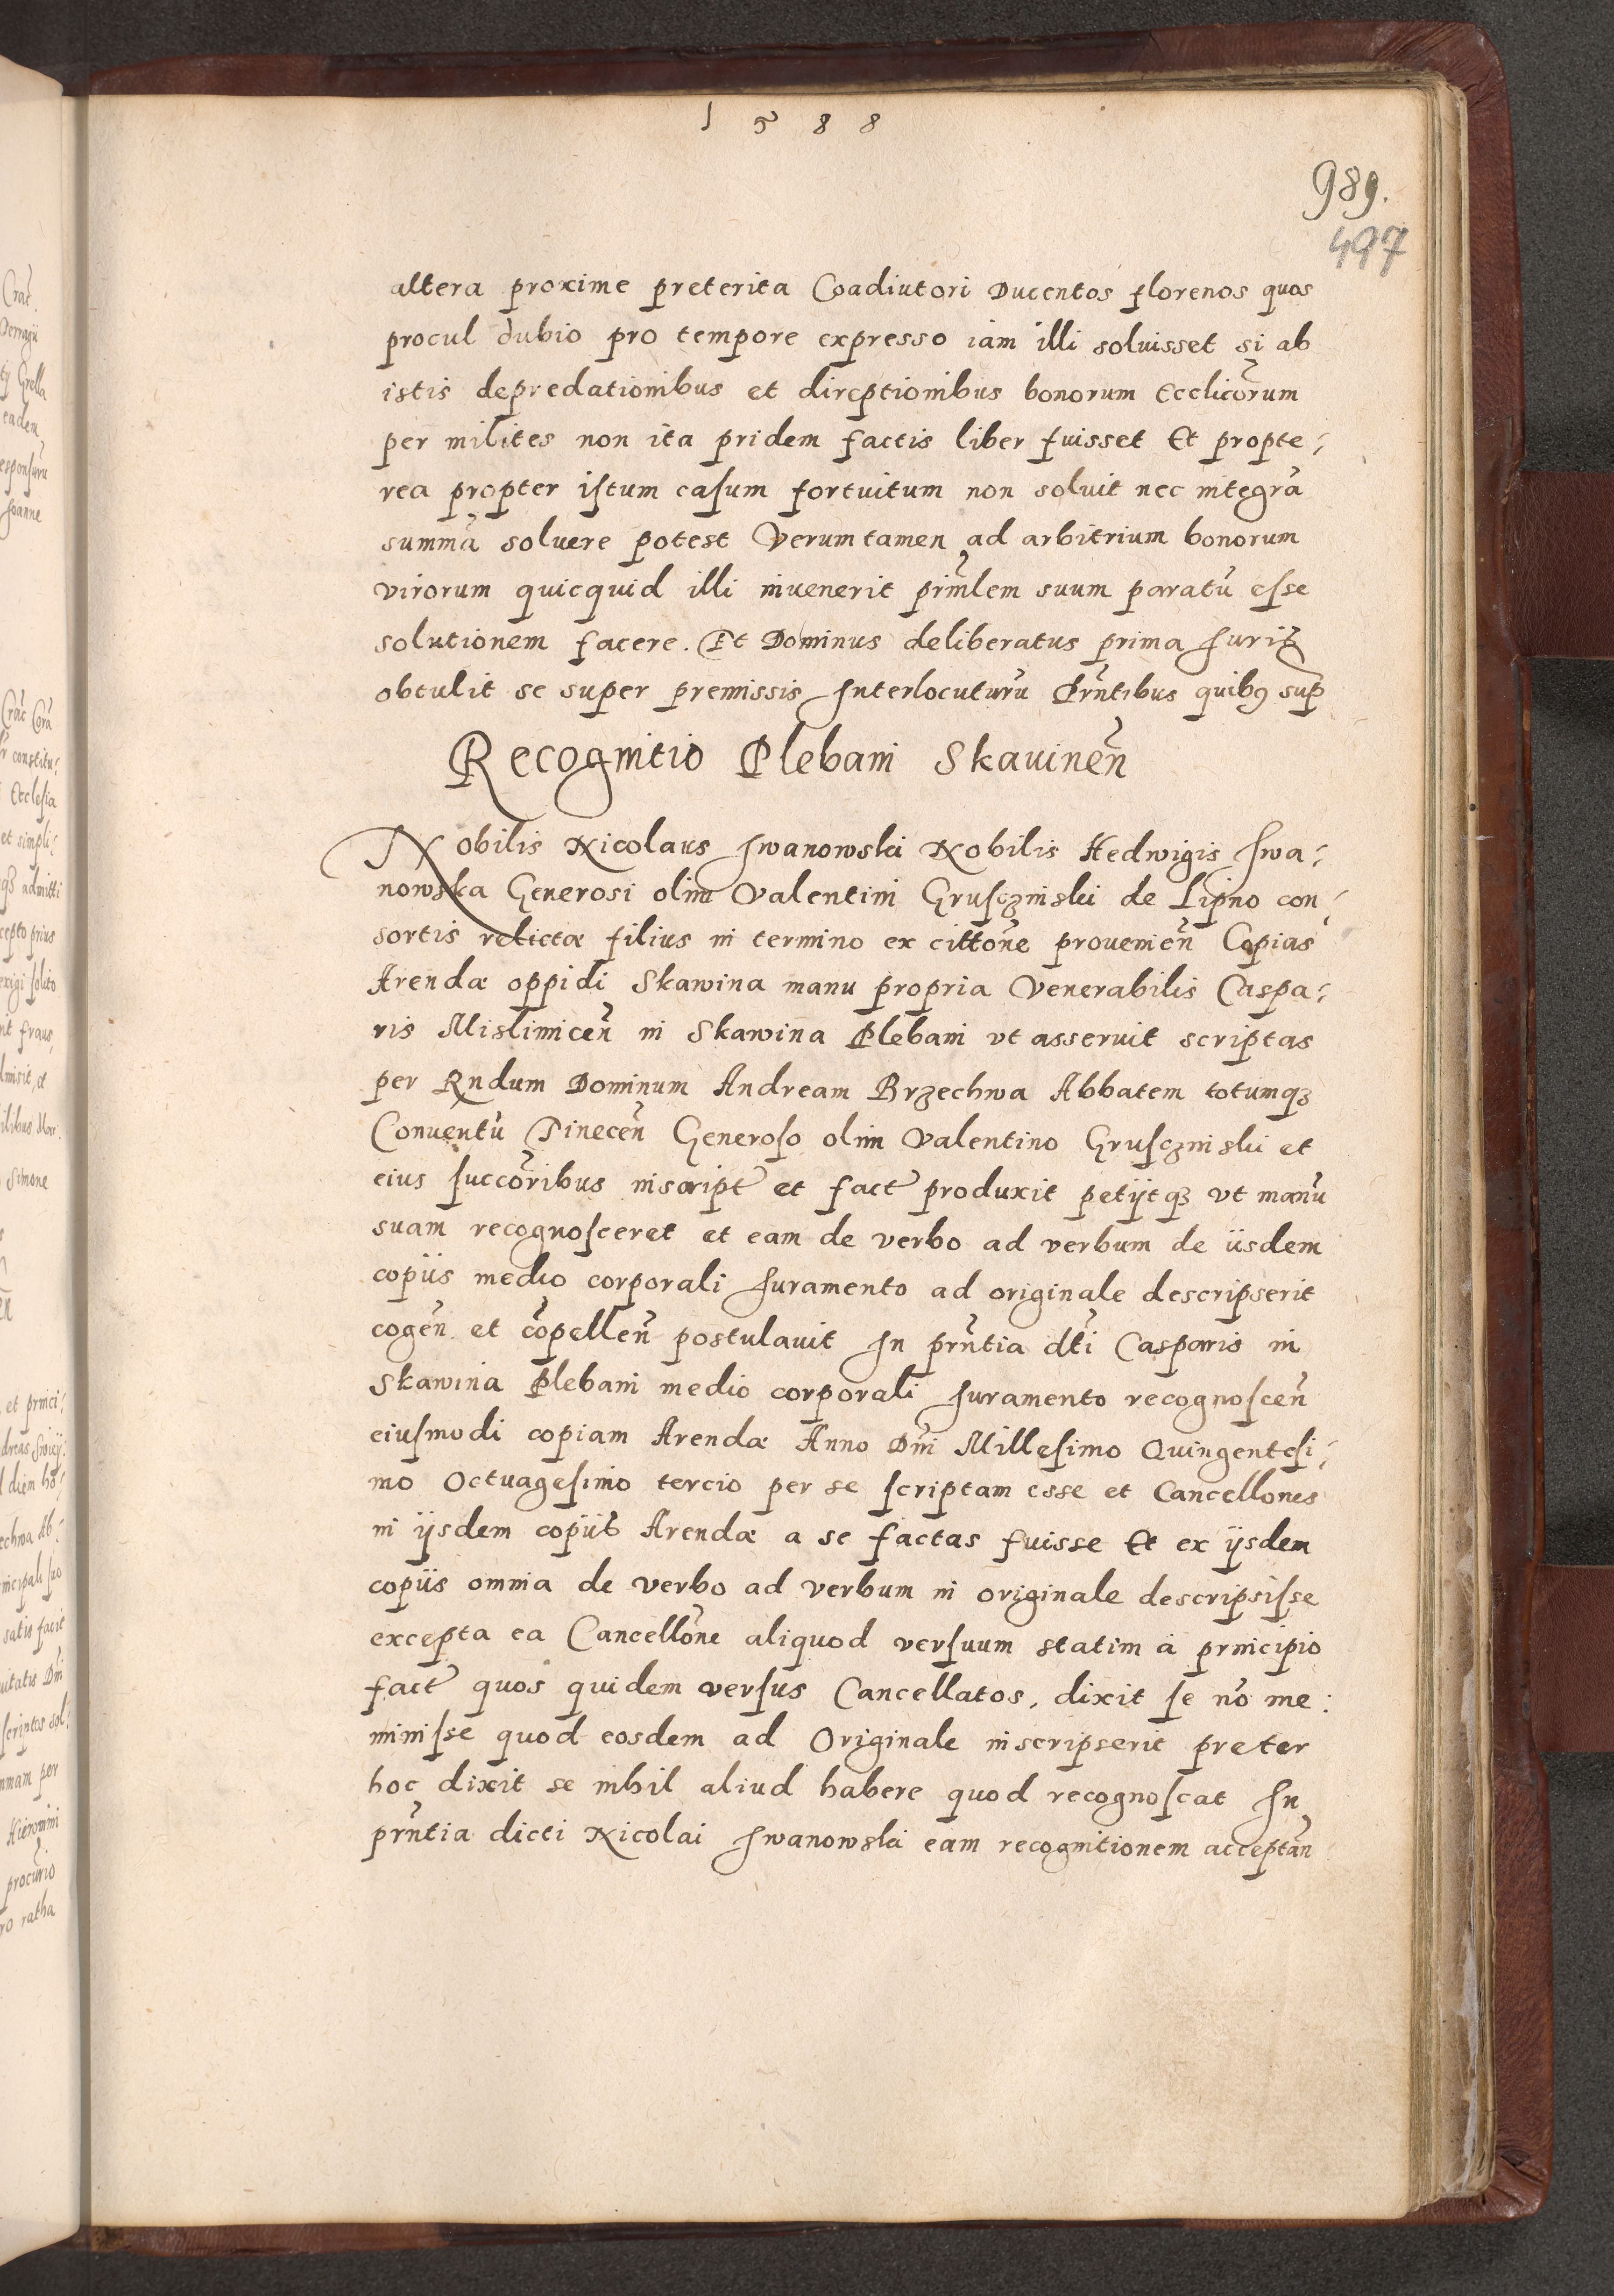 1588
989.
497
altera proxime preterita Coadiutori Ducentos florenos quos
procul dubio pro tempore expresso iam illi soluisset si ab
istis depredationibus et direptionibus bonorum Ecclicõrum
per milites non ita pridem factis liber fuisset Et propte⸗
rea propter iſtum caſum fortuitum non soluit nec integrã
summã soluere potest Verumtamen ad arbitrium bonorum
virorum quicquid illi inuenerit prinl̃em suum paratũ eſse
solutionem facere. Et Dominus deliberatus prima Iuris
obtulit se super premissis Interlocuturũ Prñtibus quibꝯ sup̃
Recognitio Plebani Skauineñ
Nobilis Nicolaus Iwanowski Nobilis Hedwigis Iwa⸗
nowska Generosi olim Valentini Gruſczinski de Lipno con⸗
sortis relictæ filius in termino ex cittõne prouenieñ Copias
Arendæ oppidi Skawina manu propria Venerabilis Caspa⸗
ris Mislimiceñ in Skawina Plebani vt asseruit scriptas
per Rndum Dominum Andream Brzechwa Abbatem totumqꝫ
Conuentũ Tineceñ Generoſo olim Valentino Gruſczinski et
eius ſuccõribus inscript̃ et fact̃ produxit petijtqꝫ vt manũ
suam recognoſceret et eam de verbo ad verbum de iisdem
copiis medio corporali Iuramento ad originale descripserit
cogeñ et cõpelleñ postulauit In prñtia dt̃i Casparis in
Skawina Plebani medio corporali Iuramento recognoſceñ
eiuſmodi copiam Arendæ Anno Dñi Milleſimo Quingenteſi⸗
mo Octuageſimo tercio per se ſcriptam esse et Cancellones
in ijsdem copiis Arendæ a se factas fuisse Et ex ijsdem
copiis omnia de verbo ad verbum in originale descripsiſse
excepta ea Cancellõne aliquod verſuum statim à principio
fact̃ quos quidem verſus Cancellatos, dixit ſe nõ me:
miniſse quod eosdem ad Originale inscripserit preter
hoc dixit se nihil aliud habere quod recognoſcat In
prñtia dicti Nicolai Iwanowski eam recognitionem acceptañ